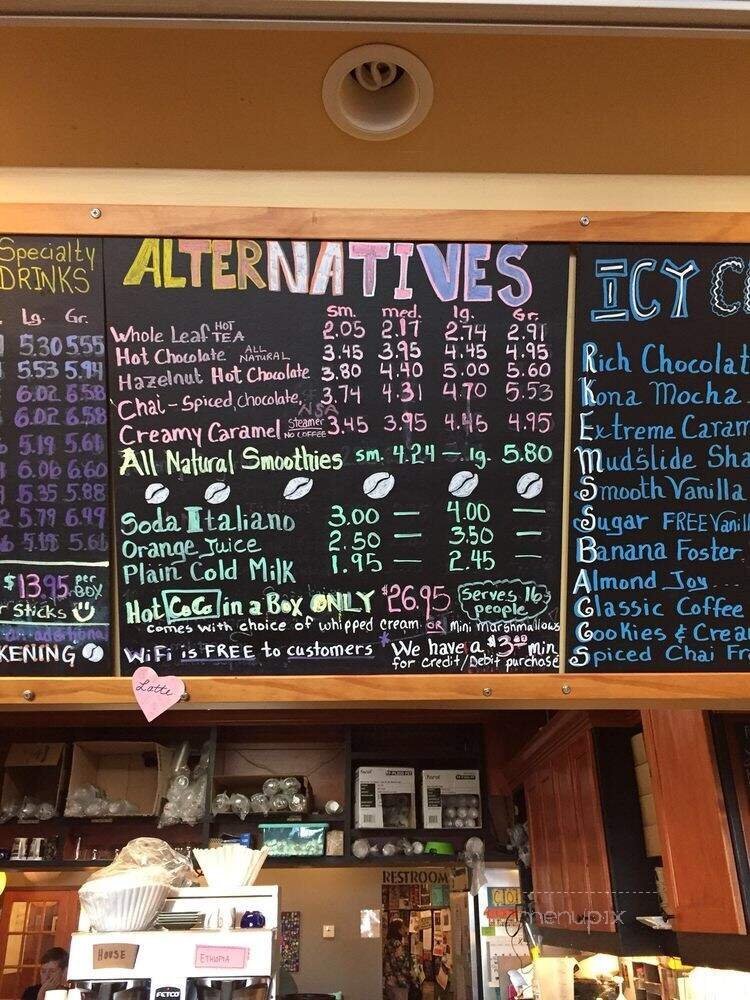 Specialty
DRINKS
Lg. Gr.
5.30 5.55
5.53 5.94
6.02 6.58
6.02 6.58
5.19 5.61
6.06 6.60
5.35 5.88
5.79 6.49
5.18 5.61
$13.95 per BOX
r Sticks
KENING
ALTERNATIVES
sm. med. lg. Gr.
Whole Leaf HOT TEA 2.05 2.17 2.74 2.91
Hot Chocolate ALL NATURAL 3.45 3.95 4.45 4.95
Hazelnut Hot Chocolate 3.80 4.40 5.00 5.60
Chai-Spiced Chocolate, NSA 3.74 4.31 4.70 5.53
Creamy Caramel Steamer NO COFFEE 3.45 3.95 4.45 4.95
All Natural Smoothies sm. 4.24 — lg. 5.80
Soda Italiano 3.00 — 4.00 —
Orange Juice 2.50 — 3.50 —
Plain Cold Milk 1.95 — 2.45 —
Hot CoCo in a Box ONLY $26.95 Serves 16 people
comes with choice of whipped cream OR mini marshmallows
WiFi is FREE to customers * We have a $3.00 min
for credit/Debit purchase
ICY C
Rich Chocolat
Kona Mocha
Extreme Caram
Mudslide Sha
Smooth Vanilla
Sugar FREE Vanill
Banana Foster
Almond Joy
Classic Coffee
Cookies & Crea
Spiced Chai Fr
Latte
RESTROOM
HOUSE
ETHIOPIA
FETCO
menupix